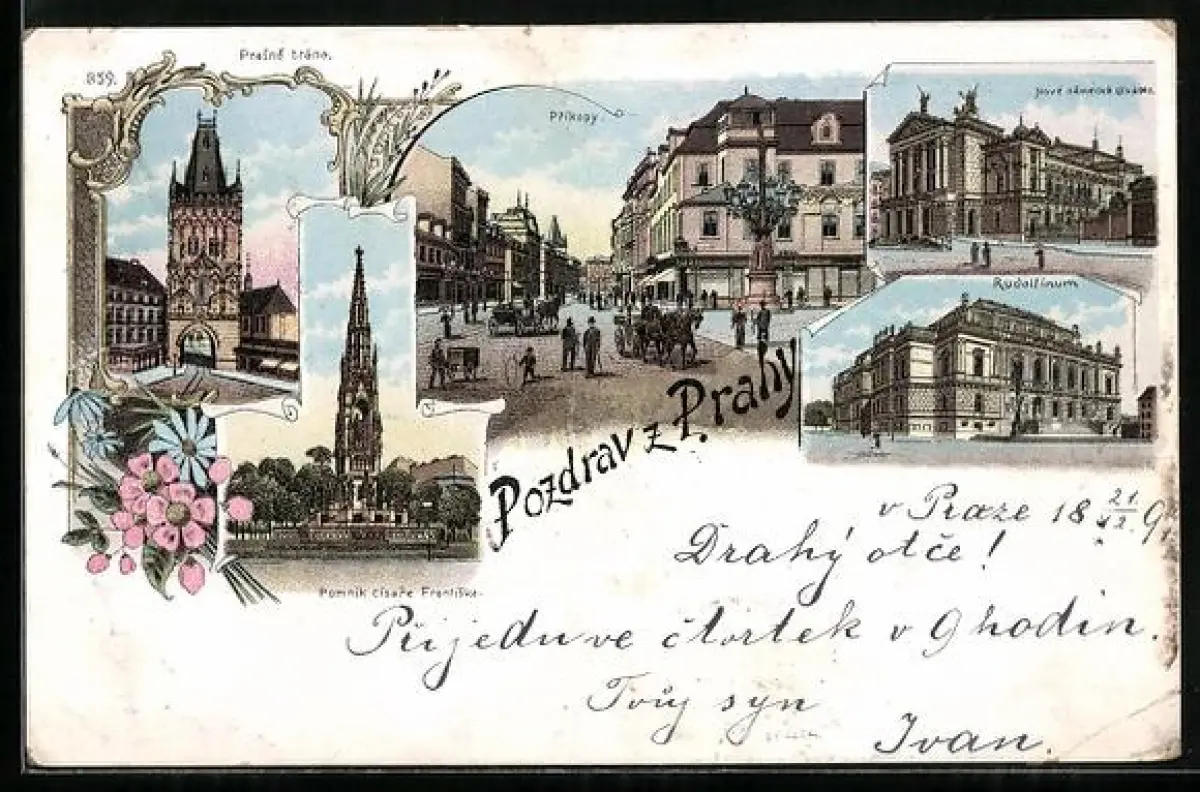 Prašné brána.
859.
Příkopy.
Nové německé divadlo.
Rudolfinum
Pomník císaře Františka.
Pozdrav z Prahy
v Praze 18 21/12 9
Drahý otče!
Přijedu ve čtvrtek v 9 hodin.
Tvůj syn
Ivan.